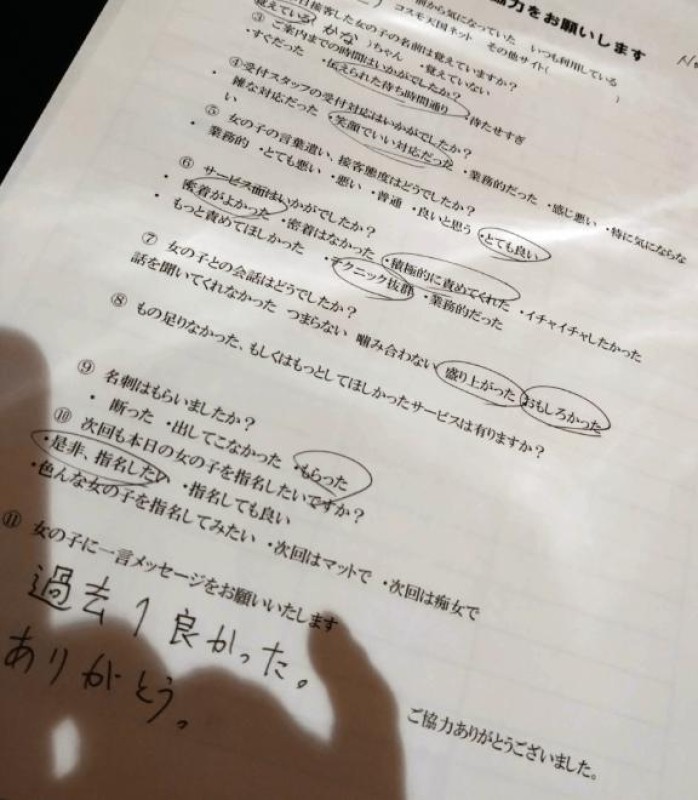 協力をお願いします
前から気になっていた いつも利用している
コスモ天国ネット その他サイト( )
日接客した女の子の名前は覚えていますか?
覚えている( かな )ちゃん ・覚えていない
③ ご案内までの時間はいかがでしたか?
・すぐだった ・伝えられた待ち時間通り ・待たせすぎ
④受付スタッフの受付対応はいかがでしたか?
・雑な対応だった ・笑顔でいい対応だった ・業務的だった ・感じ悪い ・特に気にならな
い
⑤ 女の子の言葉遣い、接客態度はどうでしたか?
・業務的 ・とても悪い ・悪い ・普通 ・良いと思う ・とても良い
⑥ サービス面はいかがでしたか?
・密着がよかった ・密着はなかった ・積極的に責めてくれた ・イチャイチャしたかった
・もっと責めてほしかった ・テクニック抜群 ・業務的だった
⑦ 女の子との会話はどうでしたか?
話を聞いてくれなかった つまらない 噛み合わない 盛り上がった おもしろかった
⑧ もの足りなかった、もしくはもっとしてほしかったサービスは有りますか?
⑨ 名刺はもらいましたか?
・断った ・出してこなかった ・もらった
⑩ 次回も本日の女の子を指名したいですか?
・是非、指名したい ・指名しても良い
・色んな女の子を指名してみたい ・次回はマットで ・次回は痴女で
⑪ 女の子に一言メッセージをお願いいたします
過去1良かった。
ありがとう。
ご協力ありがとうございました。